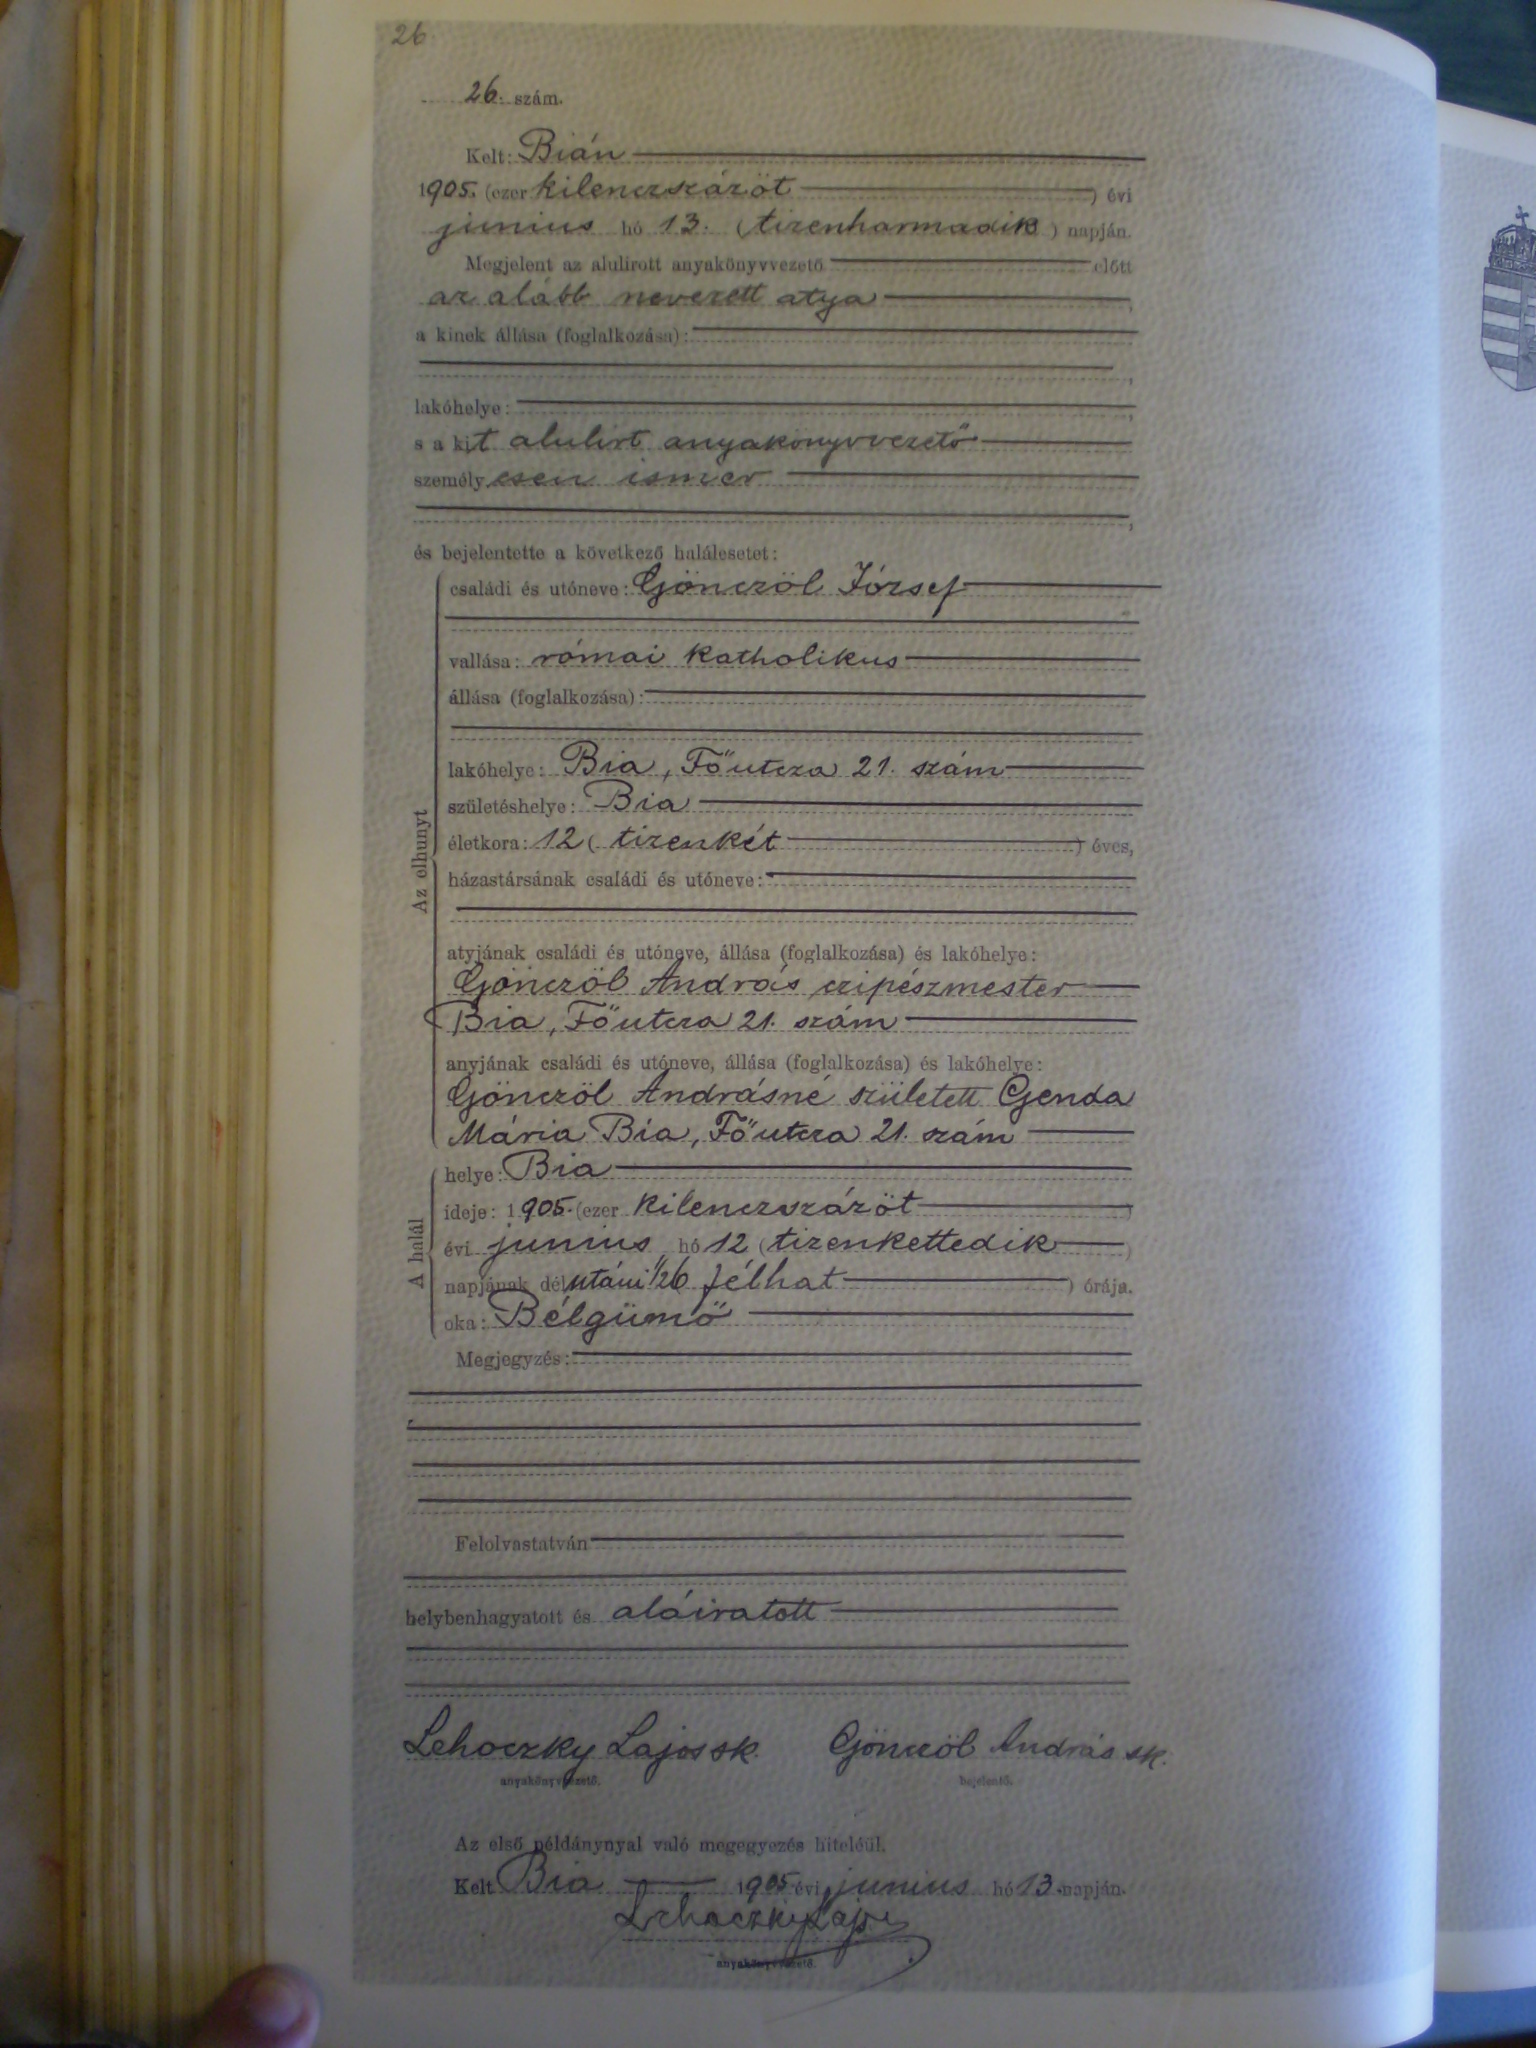 26
26. szám.
Kelt: Bián
1905. (ezer kilenczszázöt ) évi
junius hó 13. (tizenharmadik) napján.
Megjelent az alulirott anyakönyvvezető előtt
az alább nevezett atya ,
a kinek állása (foglalkozása):
,
lakóhelye: ,
s a kit alulirt anyakönyvvezető
személyesen ismer
,
és bejelentette a következő halálesetet:
Az elhunyt
családi és utóneve: Gönczöl József
vallása: római katholikus
állása (foglalkozása):
lakóhelye: Bia, Főutcza 21. szám
születéshelye: Bia
életkora: 12 (tizenkét ) éves,
házastársának családi és utóneve:
atyjának családi és utóneve, állása (foglalkozása) és lakóhelye:
Gönczöl András czipészmester
Bia, Főutcza 21. szám
anyjának családi és utóneve, állása (foglalkozása) és lakóhelye:
Gönczöl Andrásné született Genda
Mária Bia, Főutcza 21. szám
A halál
helye: Bia
ideje: 1905. (ezer kilenczszázöt )
évi junius hó 12 (tizenkettedik )
napjának délutáni 1/26 félhat ) órája.
oka: Bélgümő
Megjegyzés:
Felolvastatván
helybenhagyatott és aláiratott
Lehoczky Lajos sk. Gönczöl András sk.
anyakönyvvezető. bejelentő.
Az első példánynyal való megegyezés hiteléül.
Kelt Bia 1905 évi junius hó 13 napján.
Lehoczky Lajos
anyakönyvvezető.